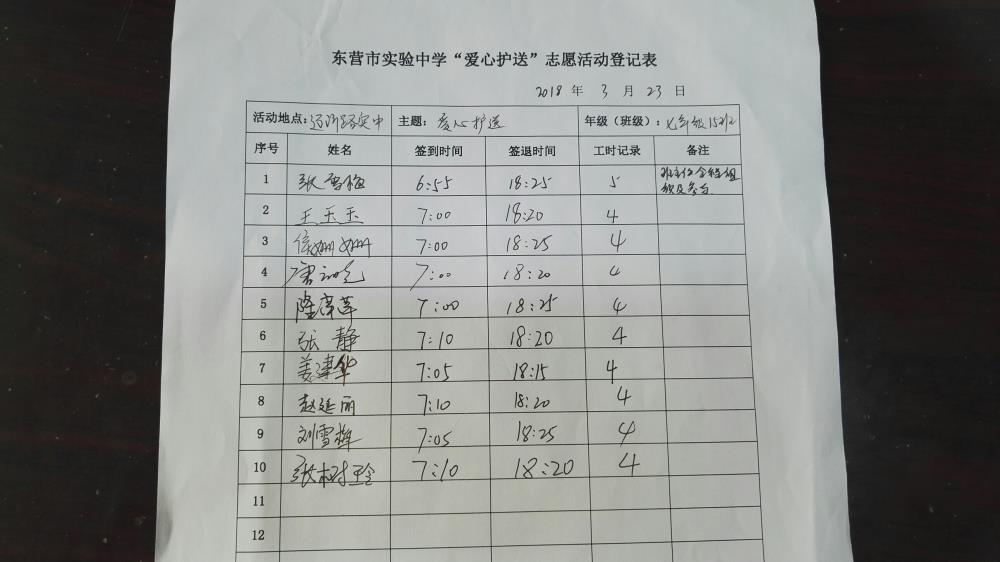 东营市实验中学“爱心护送”志愿活动登记表
2018 年 3 月 23 日
活动地点: 实中 主题: 爱心护送 年级（班级）: 七年级15班
序号 姓名 签到时间 签退时间 工时记录 备注
1 张雪梅 6:55 18:25 5 班主任全程组
织及参与
2 王玉玉 7:00 18:20 4
3 侯姗姗 7:00 18:25 4
4 7:00 18:20 4
5 隆 7:00 18:25 4
6 张静 7:10 18:20 4
7 姜建华 7:05 18:15 4
8 赵延丽 7:10 18:20 4
9 刘雪 7:05 18:25 4
10 张树玲 7:10 18:20 4
11
12